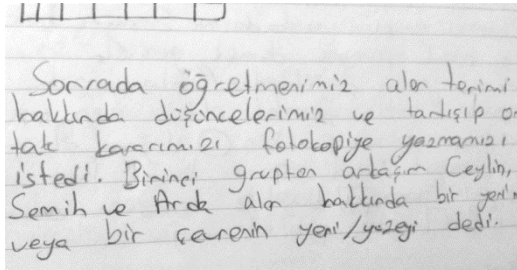 Sonrada öğretmenimiz alan terimi
hakkında düşüncelerimiz ve tartışıp or
tak kararımızı fotokopiye yazmamızı
istedi. Birinci grupton arkaşım Ceylin,
Semih ve Arda alan hakkında bir yerin
veya bir çevrenin yeri/yüzeyi dedi.